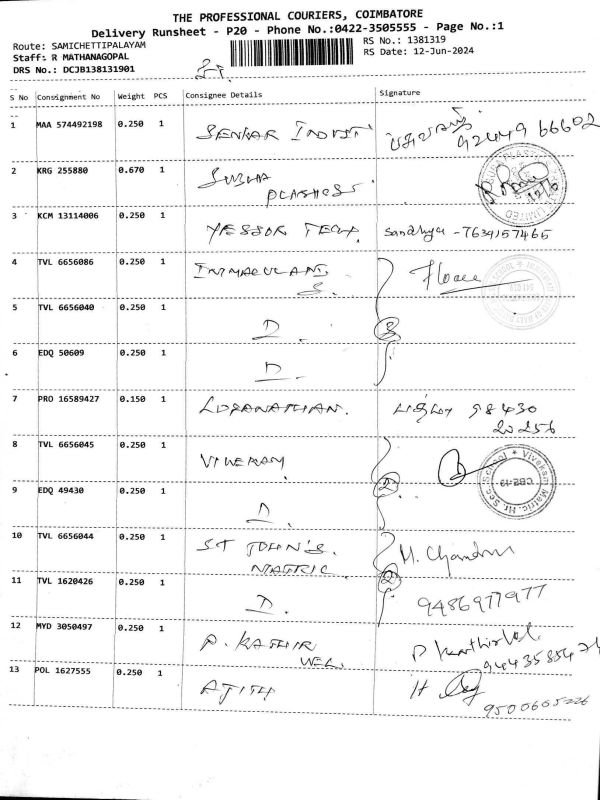 THE PROFESSIONAL COURIERS, COIMBATORE
Delivery Runsheet - P20 - Phone No.:0422-3505555 - Page No.:1
Route: SAMICHETTIPALAYAM
RS No.: 1381319
Staff: R MATHANAGOPAL
RS Date: 12-Jun-2024
DRS No.: DCJB138131901
S No Consignment No Weight PCS Consignee Details Signature
1 MAA 574492198 0.250 1
2 KRG 255880 0.670 1
3 KCM 13114006 0.250 1 Sandhya - 7639157465
4 TVL 6656086 0.250 1
5 TVL 6656040 0.250 1 D.
3
6 EDQ 50609 0.250 1 D.
7 PRO 16589427 0.150 1 LOGANATHAN. 98430
20256
8 TVL 6656045 0.250 1
2
9 EDQ 49430 0.250 1 D.
10 TVL 6656044 0.250 1 ST JOHN'S. M. Chandru
MATRIC.
2
11 TVL 1620426 0.250 1 D. 9486977977
12 MYD 3050497 0.250 1 P. KATHIR
WEL.
13 POL 1627555 0.250 1 AJITH
9500605226